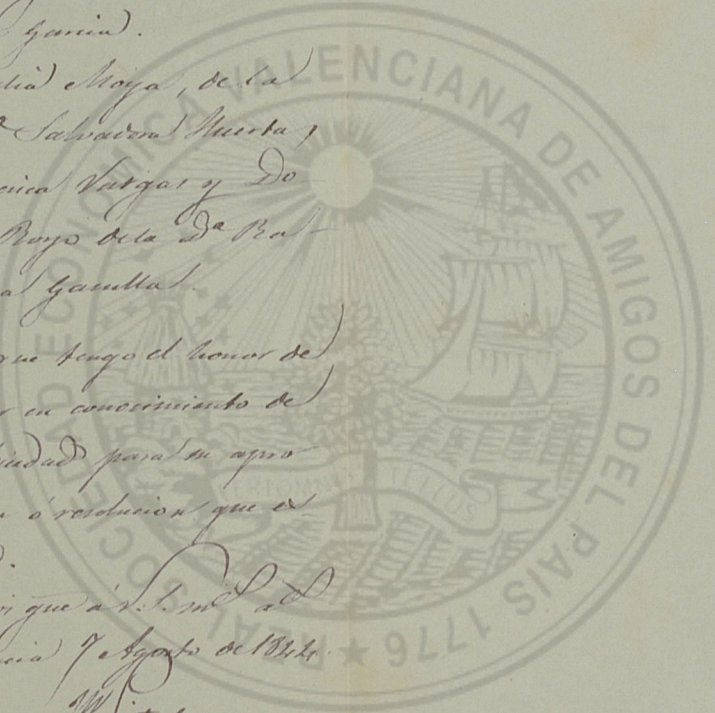 Garcia.
Moya, de la
Salvadora Huerta,
Vargas y Do
Royo dela Dª Ra-
a
que tengo el honor de
r en conocimiento de
para su apro
ó resolucion que es
que á V.S. ms. as.
cia 7 Agosto de 1844.
REAL SOCIEDAD ECONOMICA VALENCIANA DE AMIGOS DEL PAIS 1776 ★
OMNIS TELLUS